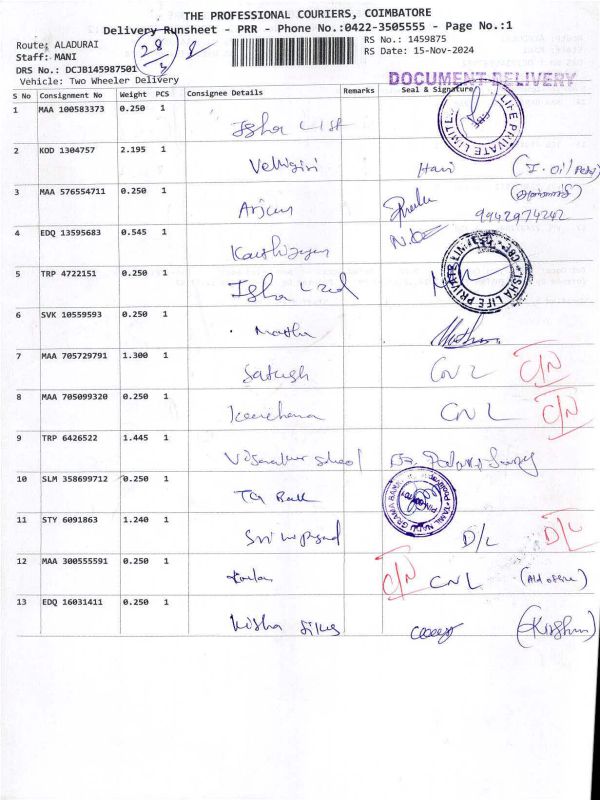 THE PROFESSIONAL COURIERS, COIMBATORE
Delivery Runsheet - PRR - Phone No.:0422-3505555 - Page No.:1
Route: ALADURAI
RS No.: 1459875
Staff: MANI
RS Date: 15-Nov-2024
28/3
DRS No.: DCJB145987501
Vehicle: Two Wheeler Delivery
DOCUMENT DELIVERY
S No Consignment No Weight PCS Consignee Details Remarks Seal & Signature
1 MAA 100583373 0.250 1 Isha
LIFE PRIVATE LIMIT
CBE
2 KOD 1304757 2.195 1 Velligiri Hari
3 MAA 576554711 0.250 1 Arjun
9942974242
4 EDQ 13595683 0.545 1
5 TRP 4722151 0.250 1 Isha
ISHA LIFE PRIVATE LIMITED CBE
6 SVK 10559593 0.250 1
7 MAA 705729791 1.300 1 Satish CNL C/N
8 MAA 705099320 0.250 1 CNL C/N
9 TRP 6426522 1.445 1 school
10 SLM 358699712 0.250 1 TG Bank
TAMIL NADU GRAMA BANK
11 STY 6091863 1.240 1 D/L D/L
12 MAA 300555591 0.250 1 C/N CNL
13 EDQ 16031411 0.250 1